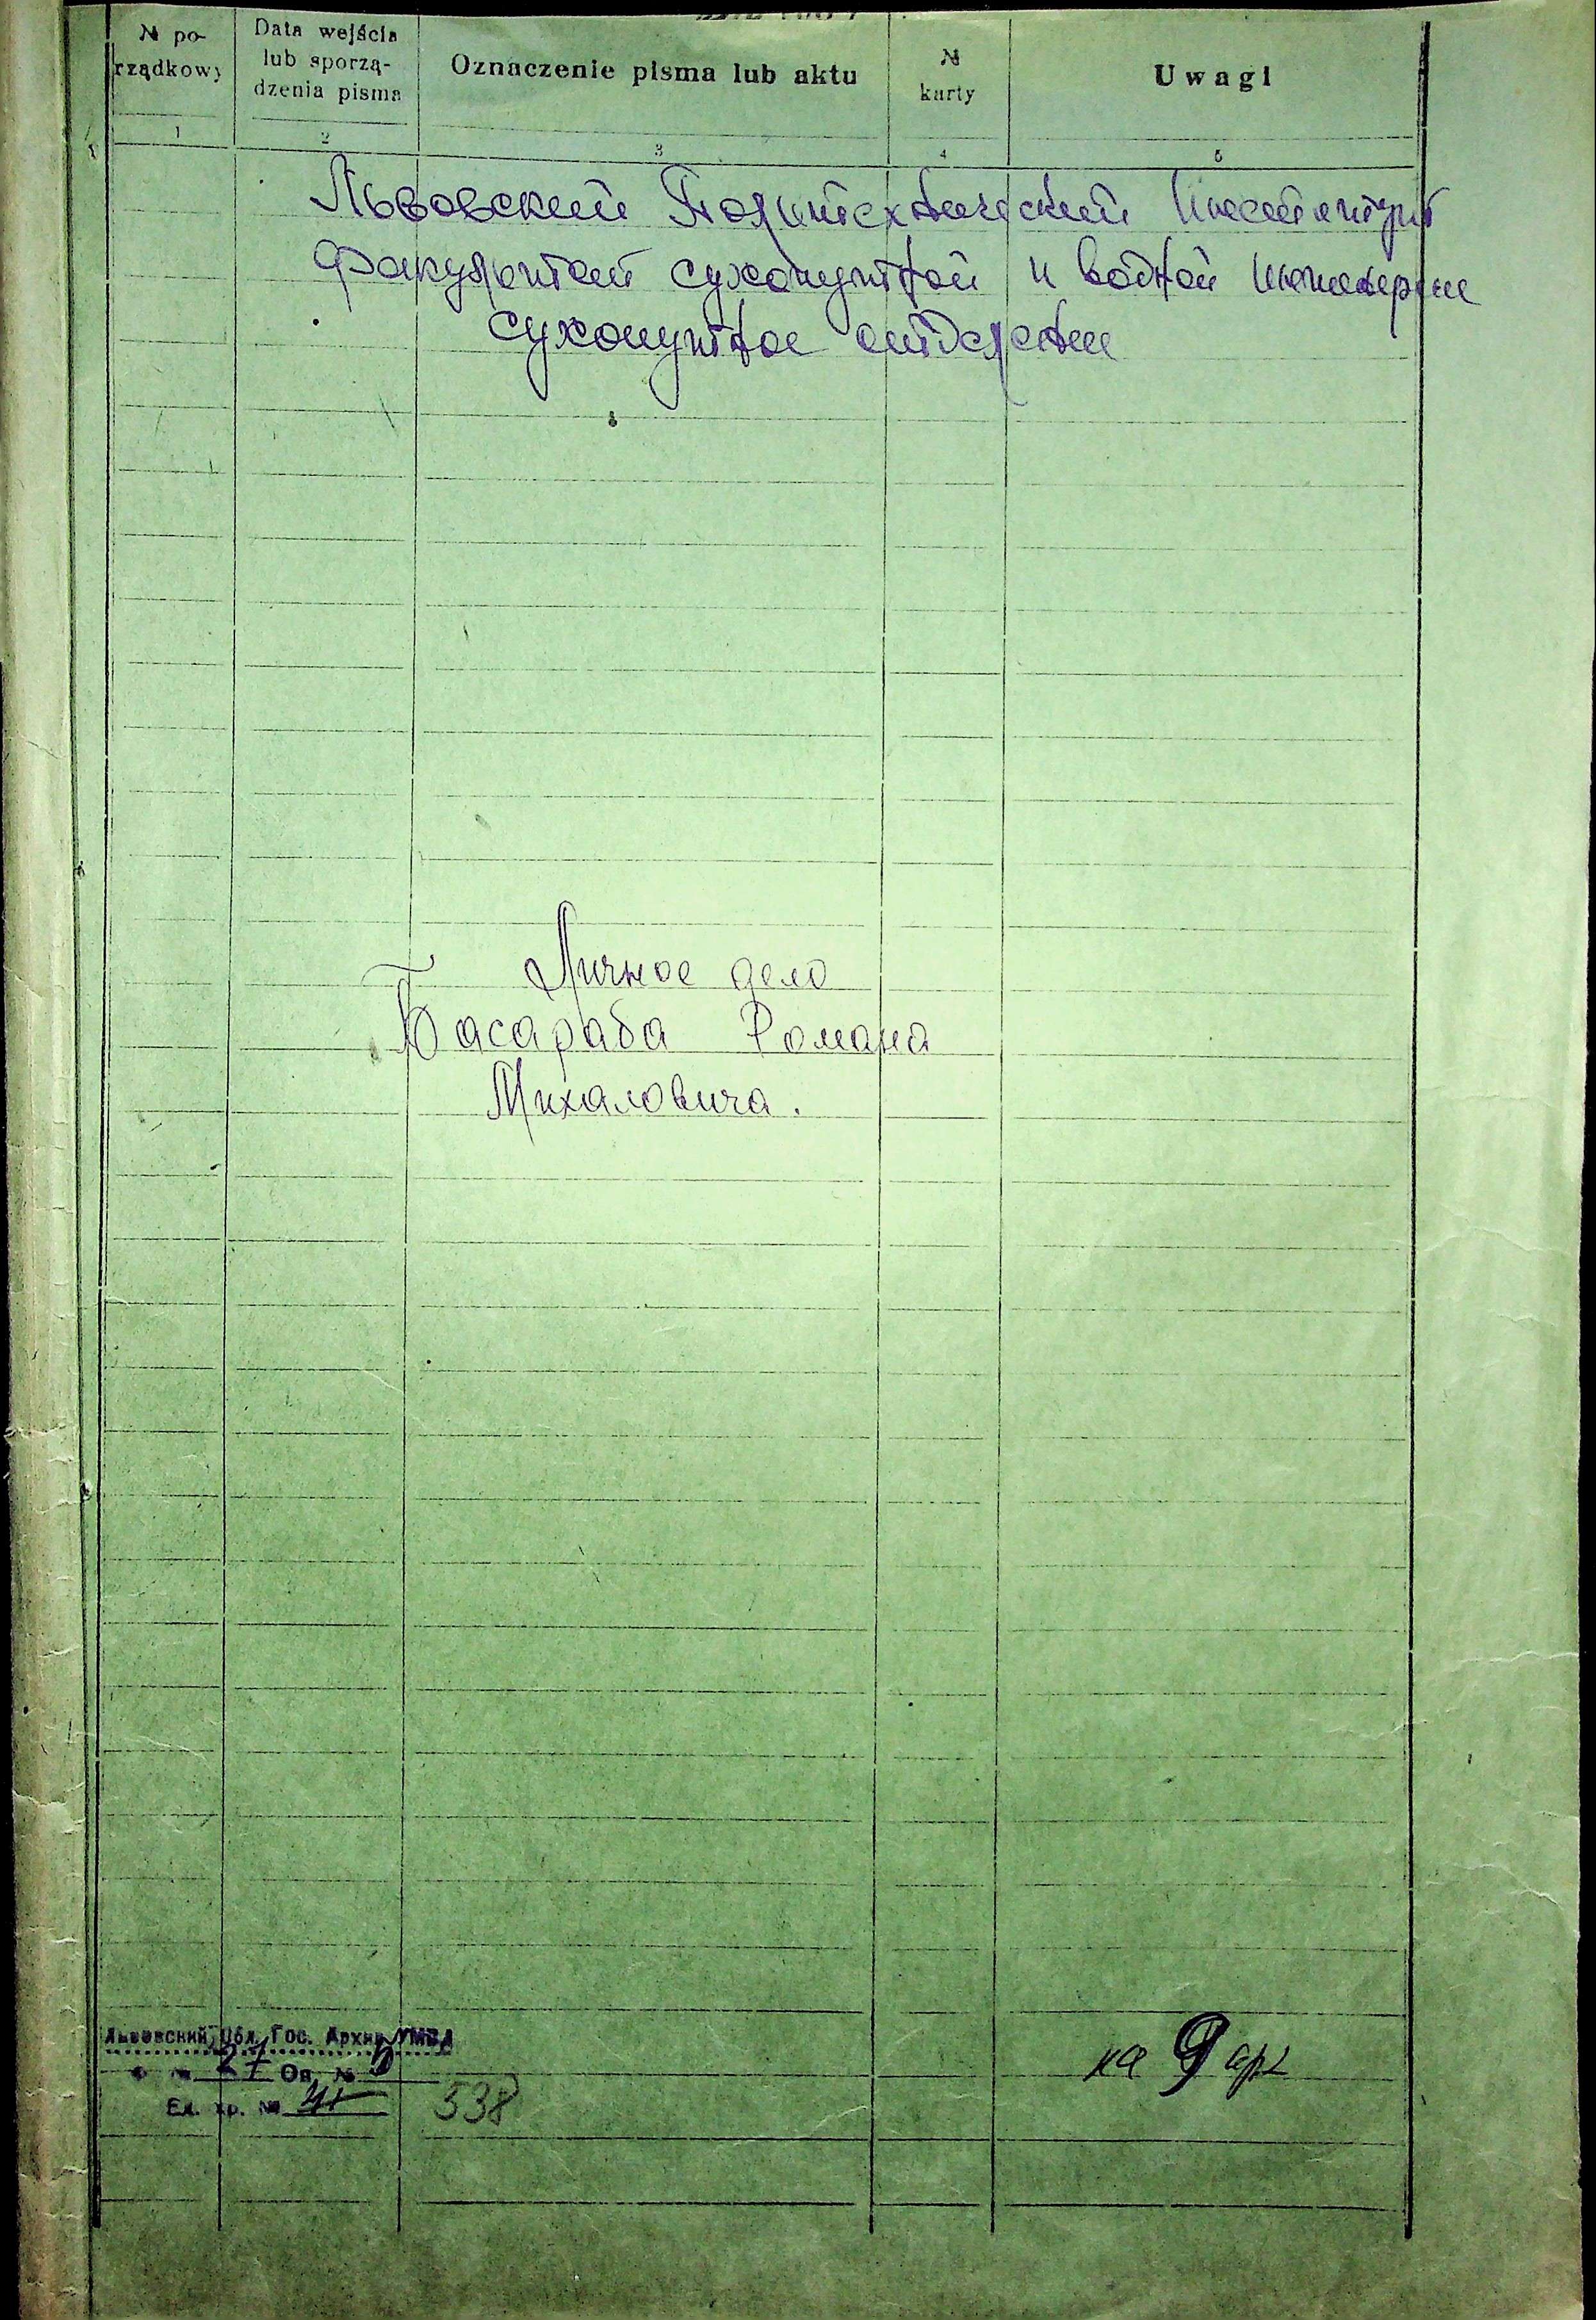 № po-
rządkowy
Data wejścia
lub sporzą-
dzenia pisma
Oznaczenie pisma lub aktu
№
karty
Uwagi
1
2
3
4
5
Львовский Политехнический Институт
Факультет сухопутной и водной инженерии
сухопутное отделение
Личное дело
Басараба Романа
Михаловича.
Львовский Обл. Гос. Архив УМВД
Ф № 27 Оп. № 5
Ед. хр. №
538
на 9 арк